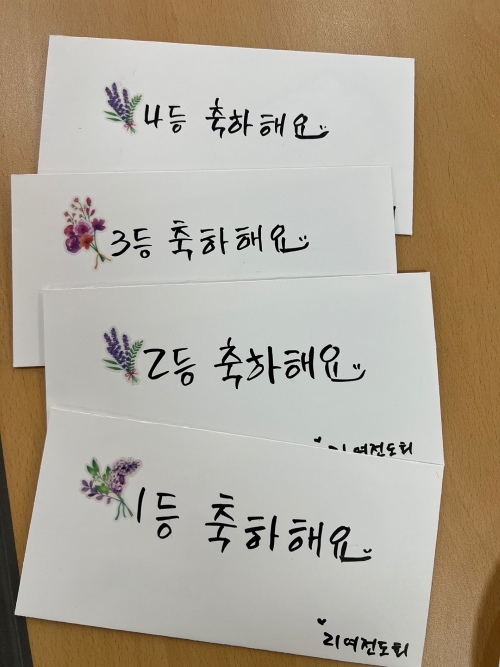 4등 축하해요
3등 축하해요
2등 축하해요
21여전도회
1등 축하해요
21여전도회